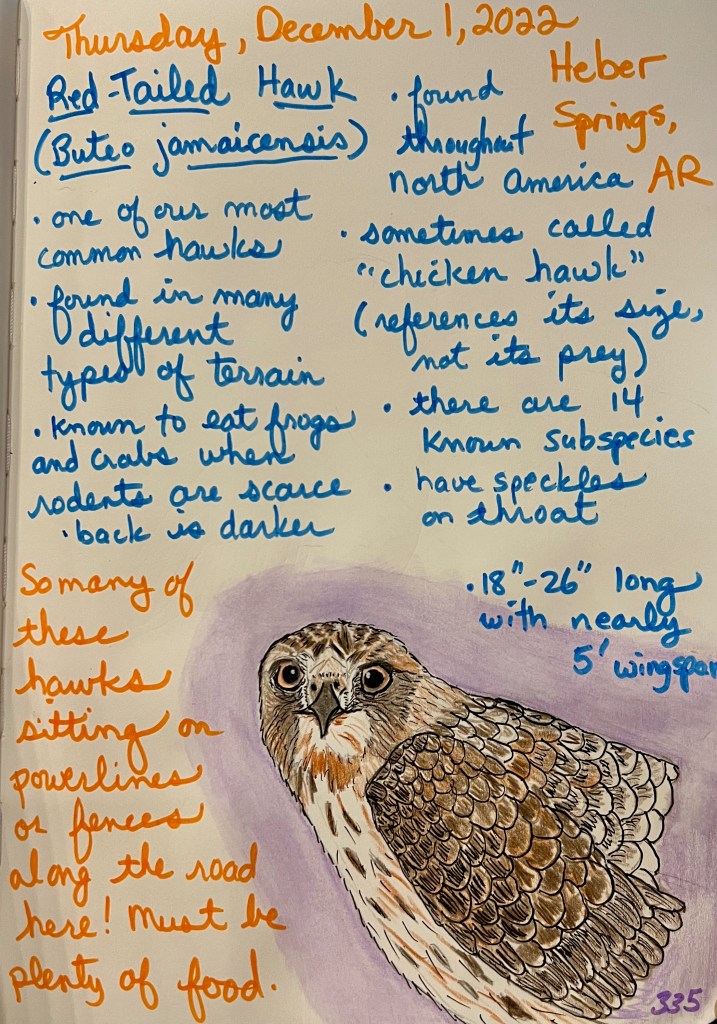 Thursday, December 1, 2022
Heber
Springs,
AR
Red-Tailed Hawk
(Buteo jamaicensis)
• one of our most
common hawks
• found in many
different
types of terrain
• known to eat frogs
and crabs when
rodents are scarce
• back is darker
• found
throughout
north america
• sometimes called
"chicken hawk"
(references its size,
not its prey)
• there are 14
known subspecies
• have speckles
on throat
• 18"-26" long
with nearly
5' wingspan
So many of
these
hawks
sitting on
powerlines
or fences
along the road
here! Must be
plenty of food.
335